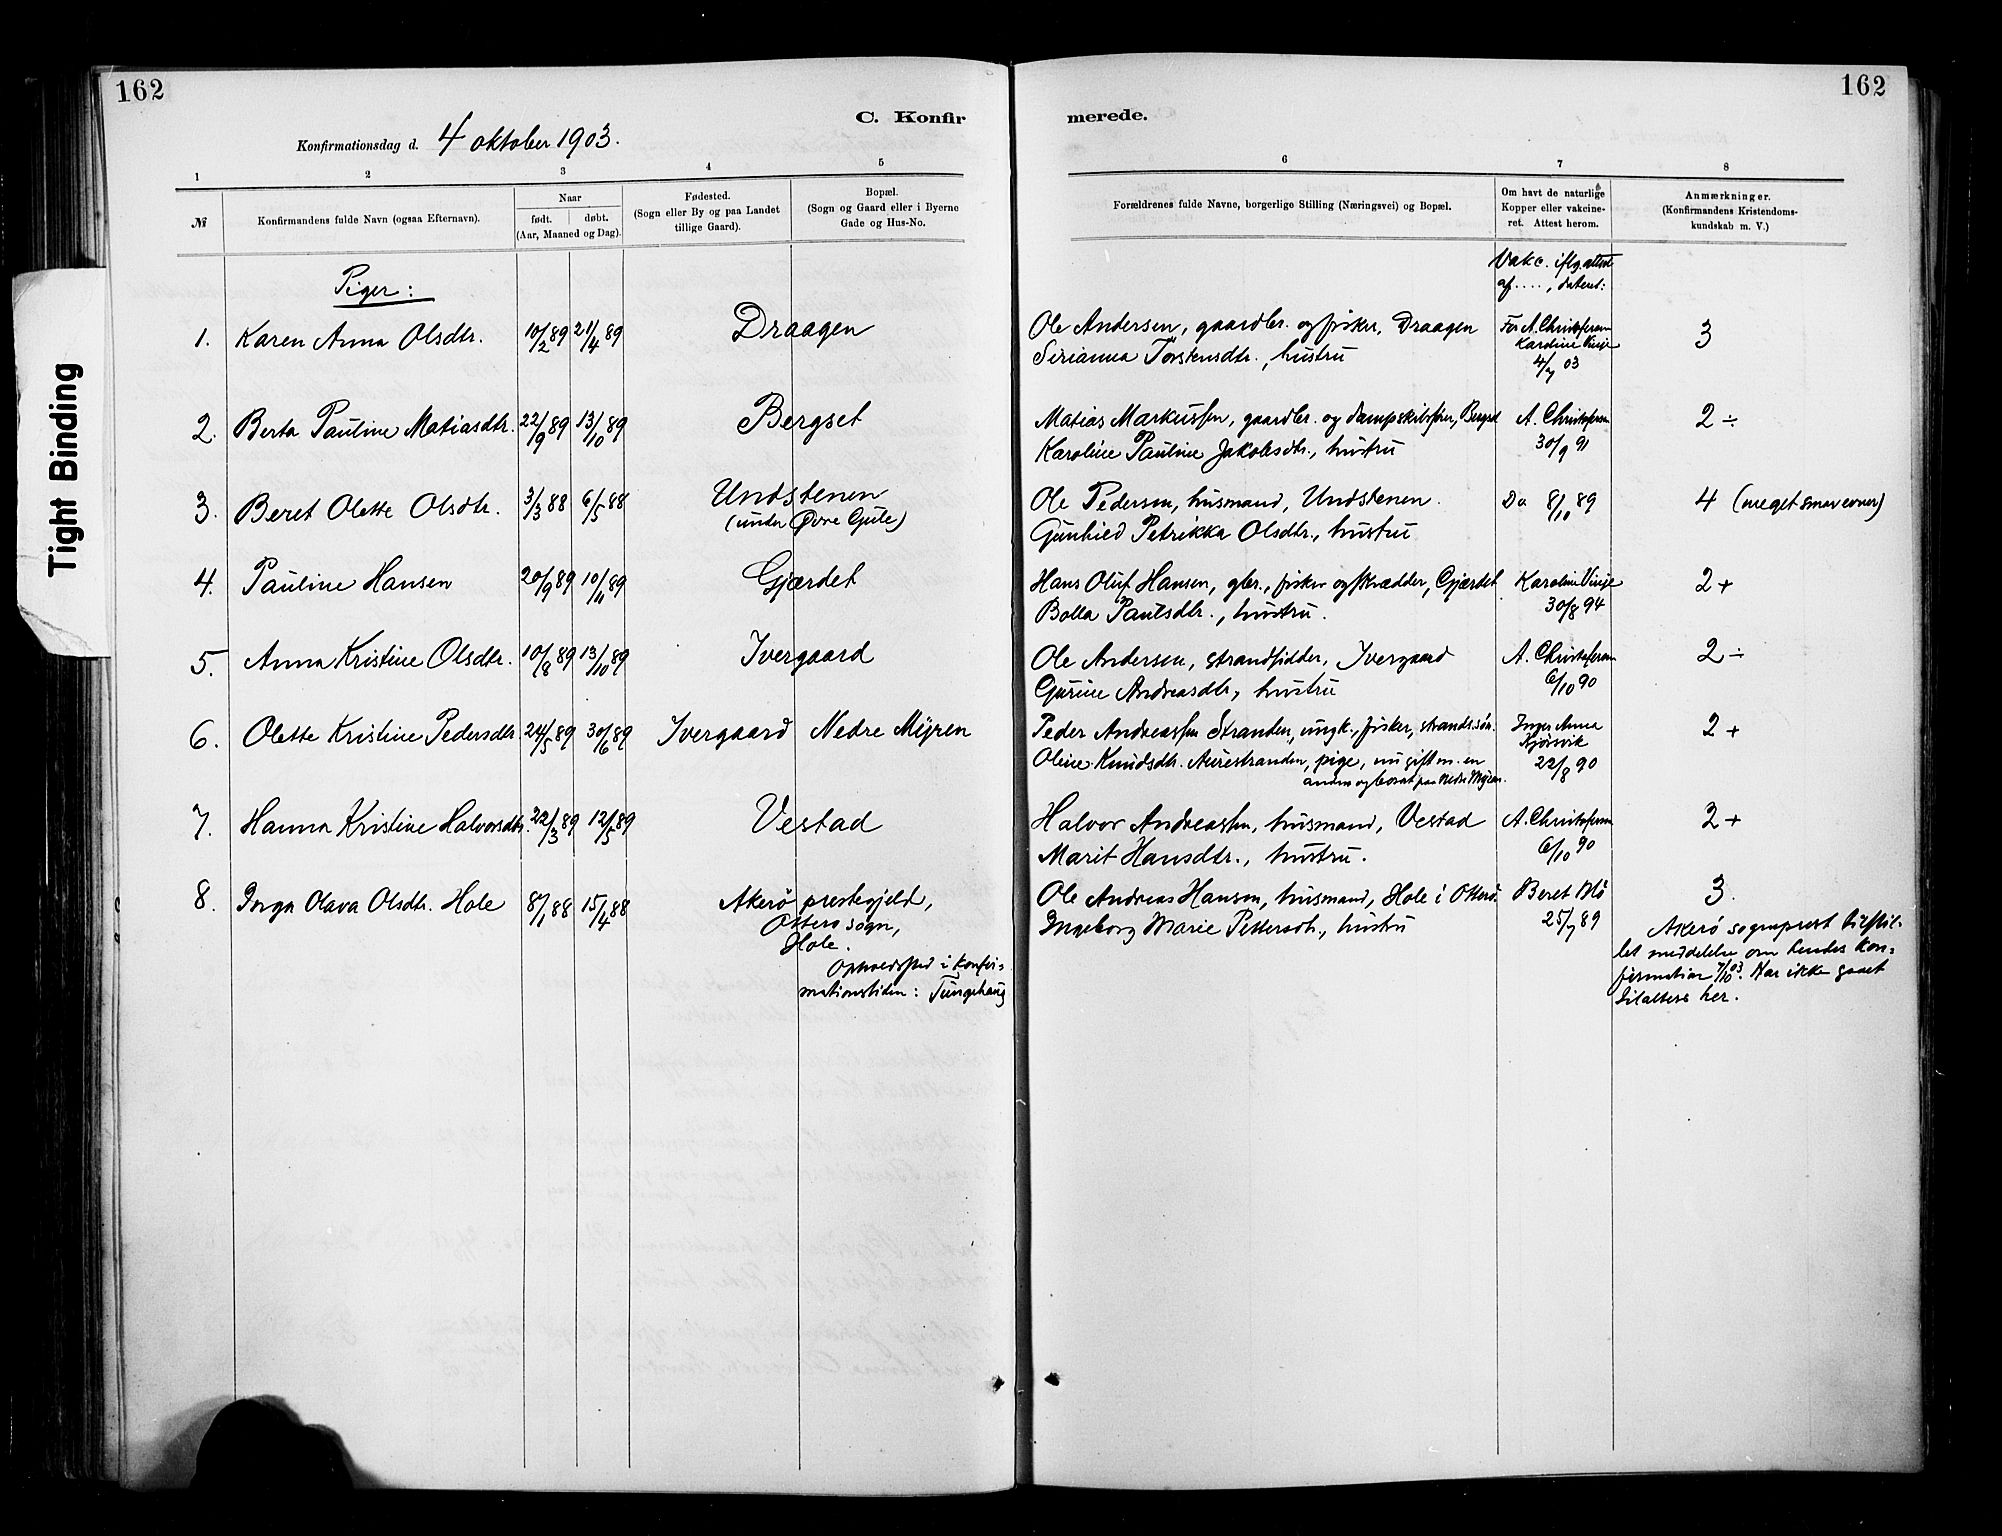 162
C. Konfir
merede.
162
Konfirmationsdag d. 4 oktober 1903.
1 2 3 4 5
6 7 8
№
Konfirmandens fulde Navn (ogsaa Efternavn).
Naar
født. døbt.
(Aar, Maaned og Dag).
Fødested.
(Sogn eller By og paa Landet
tillige Gaard).
Bopæl.
(Sogn og Gaard eller i Byerne
Gade og Hus-No.
Forældrenes fulde Navne, borgerlige Stilling (Næringsvei) og Bopæl.
Om havt de naturlige
Kopper eller vakcine-
ret. Attest herom.
Anmærkninger.
(Konfirmandens Kristendoms-
kundskab m. V.)
Piger:
Vakc. iflg. attest
af ...., dateret:
1. Karen Anna Olsdtr. 10/2 89 21/4 89 Draagen
Ole Andersen, gaardbr. og fisker, Draagen
Serianna Torstensdtr., hustru
For A. Christofersen
Karoline Vinje
4/7 03
3
2. Berta Pauline Matiasdtr. 22/9 89 13/10 89 Bergset
Matias Markussen, gaardbr. og dampskibsfører, Bergset
Karoline Pauline Jakobsdtr., hustru
A. Christofersen
30/9 91
2 ÷
3. Beret Olette Olsdtr. 3/3 88 6/5 88 Undstenen
(under Øvre Gule)
Ole Pedersen, husmand, Undstenen.
Gunhild Petrikka Olsdtr., hustru
Do 8/10 89
4 (meget smaa evner)
4. Pauline Hansen 20/9 89 10/11 89 Gjærdet
Hans Oluf Hansen, gbr., fisker og skrædder, Gjærdet
Bolla Paulsdtr., hustru.
Karoline Vinje
30/8 94
2 +
5. Anna Kristine Olsdtr. 10/8 89 13/10 89 Ivergaard
Ole Andersen, strandsidder, Ivergaard
Gurine Andreasdtr, hustru
A. Christofersen
6/10 90
2 ÷
6. Olette Kristine Pedersdtr 24/5 89 30/6 89 Ivergaard Nedre Myren
Peder Andreassen Stranden, ungk., fisker, strands.søn.
Oline Knudsdtr. Aurestranden, pige, nu gift m. en
anden og bosat paa Nedre Myren.
Inger Anna
Kjörsvik
22/8 90
2 +
7. Hanna Kristine Halvorsdtr. 22/3 89 12/5 89 Vestad
Halvor Andreassen, husmand, Vestad
Marit Hansdtr., hustru.
A. Christofersen
6/10 90
2 +
8. Inga Olava Olsdtr. Hole 8/1 88 15/4 88 Akerö prestegjeld,
Otterö sogn,
Hole.
Opholdssted i konfir-
mationstiden: Tungehaug
Ole Andreas Hansen, husmand, Hole i Otterö.
Ingeborg Marie Pettersdtr., hustru
Beret Mö
25/7 89
3.
Akerö sogneprest tilstil-
let meddelelse om hendes kon-
firmation 7/10 03. Har ikke gaaet
tilalters her.
Tight Binding